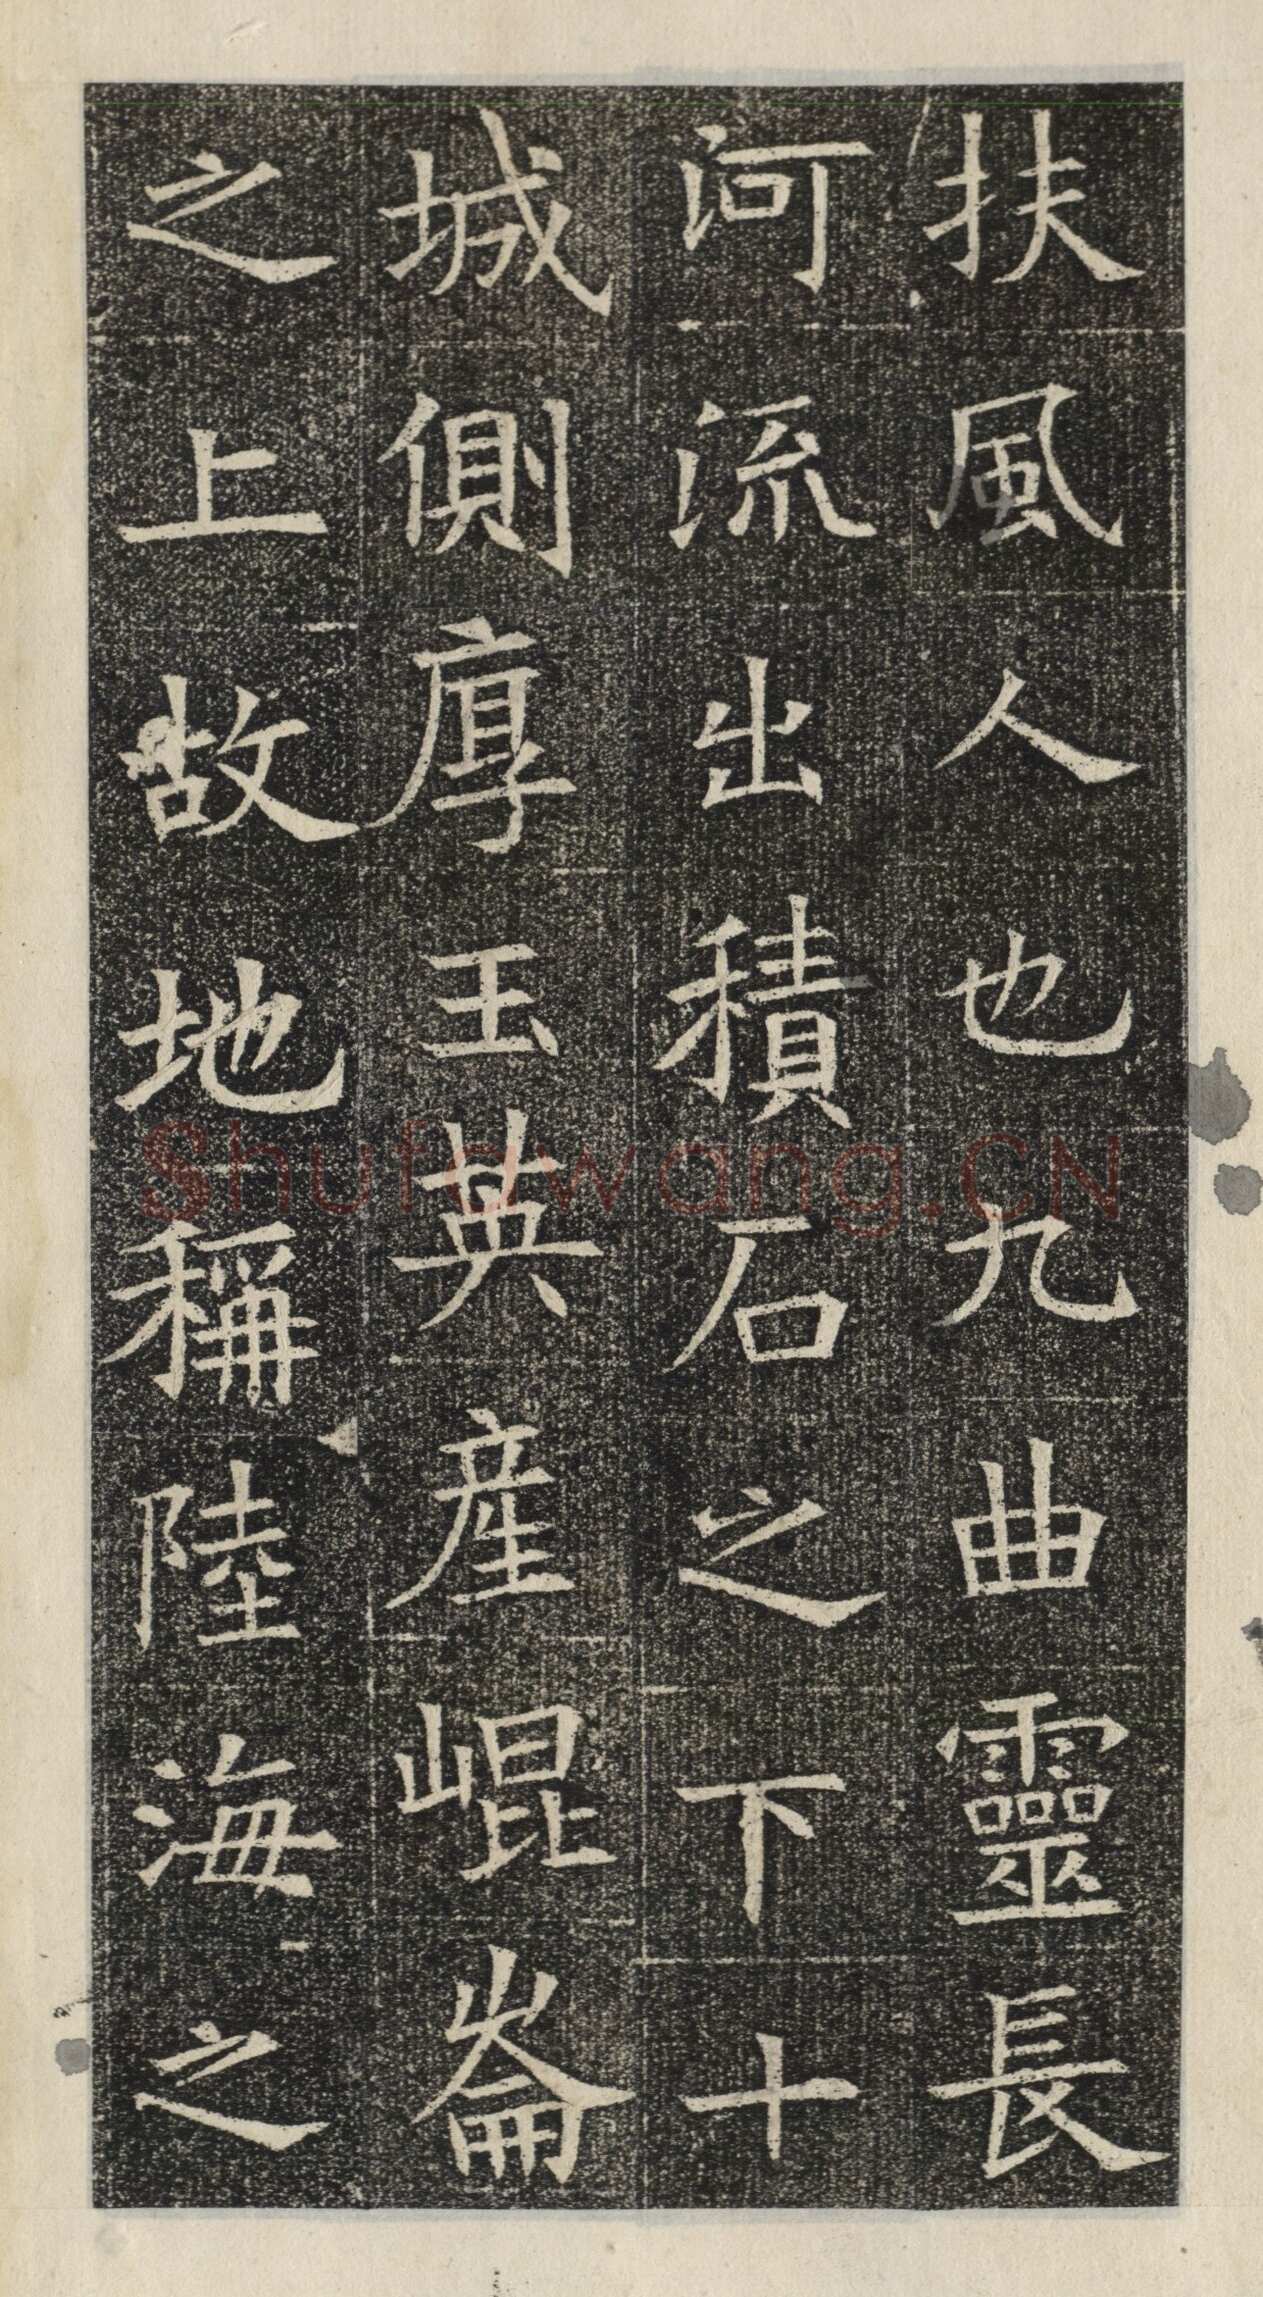 扶風人也九曲靈長
河流出積石之下十
城側厚玉英産崐崙
之上故地稱陸海之
Shufawang.CN